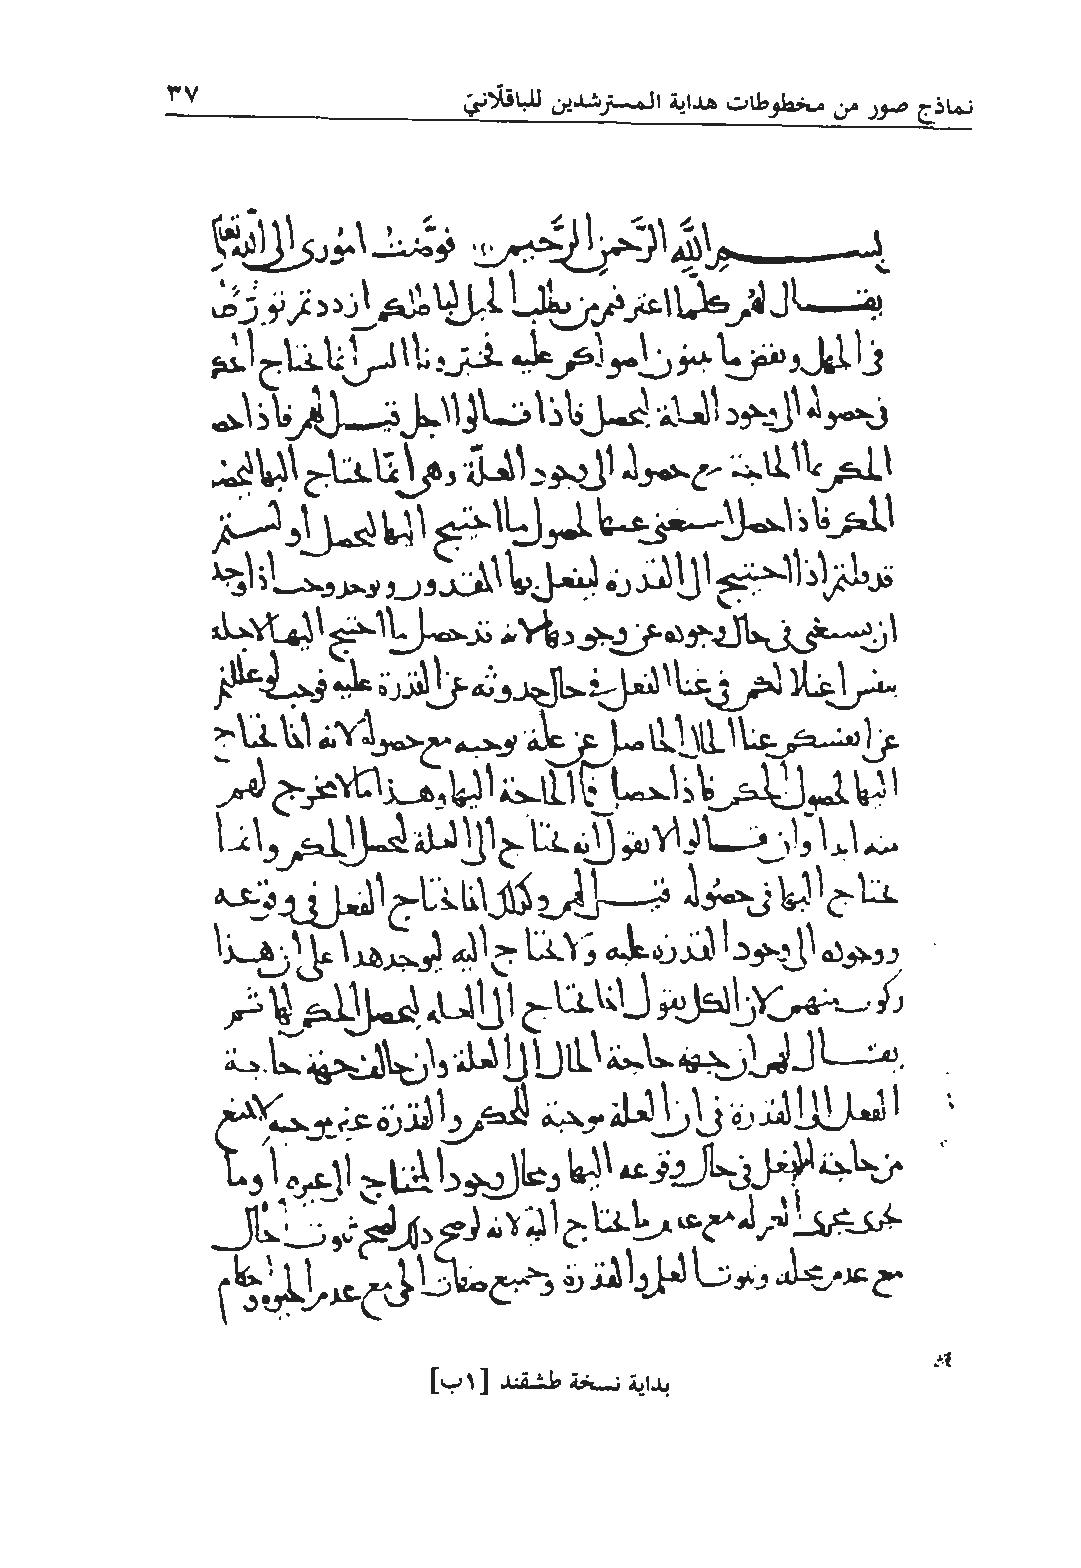 نماذج صور من مخطوطات هداية المسترشدين للباقلّانيّ ٣٧
بسم الله الرَّحمن الرَّحيم فوَّضتُ امُوري الى الله تعالى
يقال لهم كلّما اعترفتم من بطلب الحيل لباطلكم ازددتم تورّطًا
في الجهل ونقض ما تبنون اصولكم عليه فخبّرونا اليس انما يحتاج الحكم
في حصوله الى وجود العلة ليحصل فاذا قالوا اجل قيل لهم فاذا حصل
الحكم بما الحاجة مع حصوله الى وجود العلّة وهي انّما يحتاج اليها ليحصل
الحكم فاذا حصل استغنى عنها لحصول ما احتيج اليها ليحصل أولستم
قد قلتم اذا احتيج الى القدرة ليفعل بها المقدور ويوجد وجب اذا وجد
ان يستغنى في حال وجوده عن وجودها لانه قد حصل ما احتيج اليها لاجله
بنفس اعتلالكم في غنا الفعل في حال حدوثه عن القدرة عليه فوجب لو عللتم
عن انفسكم غنا الحال الحاصل عن علة توجبه مع حصوله لانه انما تحتاج
اليها لحصول الحكم فاذا حصل فما الحاجة اليها وهذا مما لا مخرج لهم
منه ابدا وان قالوا لا نقول انه يحتاج الى العلة ليحصل الحكم وانما
يحتاج اليها في حصُوله قيل لهم وكذلك انما يحتاج الفعل في وقوعه
ووجوده الى وجود القدرة عليه ولا يحتاج اليه ليوجد هذا على ان هذا
ركوب منهم لان الكل يقول انما يحتاج الى العلة ليحصل الحكم لها ثم
يقال لهم ان جهة حاجة الحال الى العلة وان خالفت جهة حاجة
الفعل الى القدرة في ان العلة موجبة للحكم والقدرة غير موجبة لا يمنع
من حاجة الفعل في حال وقوعه اليها ومحال وجود المحتاج الى غيره او ما
جرى مجرى الغير له مع عدم ما يحتاج اليه لانه لو صح ذلك لصح ثبوت الحال
مع عدم محله وثبوت العلم والقدرة وجميع صفات الحي مع عدم الحيوة واحكام
بداية نسخة طشقند [١ب]